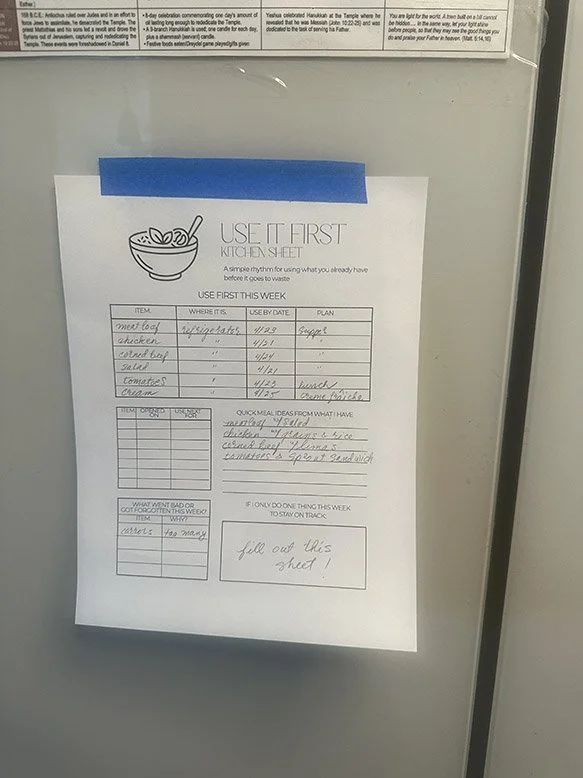 Esther)
168 B.C.E: Antiochus ruled over Judea and in an effort to
force Jews to assimilate, he desecrated the Temple. The
priest Mattathias and his sons led a revolt and drove the
Syrians out of Jerusalem, capturing and rededicating the
Temple. These events were foreshadowed in Daniel 8.
• 8-day celebration commemorating one day's amount of
oil lasting long enough to rededicate the Temple.
• A 9-branch Hanukkiah is used; one candle for each day,
plus a shammash (servant) candle.
• Festive foods eaten/Dreydel game played/gifts given
Yeshua celebrated Hanukkah at the Temple where he
revealed that he was Messiah (John 10:22-25) and was
dedicated to the task of serving his Father.
You are light for the world. A town built on a hill cannot
be hidden.... in the same way, let your light shine
before people, so that they may see the good things you
do and praise your Father in heaven. (Matt. 5:14,16)
USE IT FIRST
KITCHEN SHEET
A simple rhythm for using what you already have
before it goes to waste
USE FIRST THIS WEEK
ITEM. WHERE IT IS. USE BY DATE. PLAN
meat loaf refrigerator 4/23 supper
chicken " 4/21 "
corned beef " 4/24 "
salad " 4/21 "
tomatoes " 4/23 lunch
cream 4/25 creme fraiche
ITEM OPENED ON USE NEXT FOR
QUICK MEAL IDEAS FROM WHAT I HAVE
meatloaf w/ salad
chicken w/ & rice
corned beef w/
tomatoes & sprout sandwich
WHAT WENT BAD OR
GOT FORGOTTEN THIS WEEK?
ITEM WHY?
carrots too many
IF I ONLY DO ONE THING THIS WEEK
TO STAY ON TRACK:
fill out this
sheet!